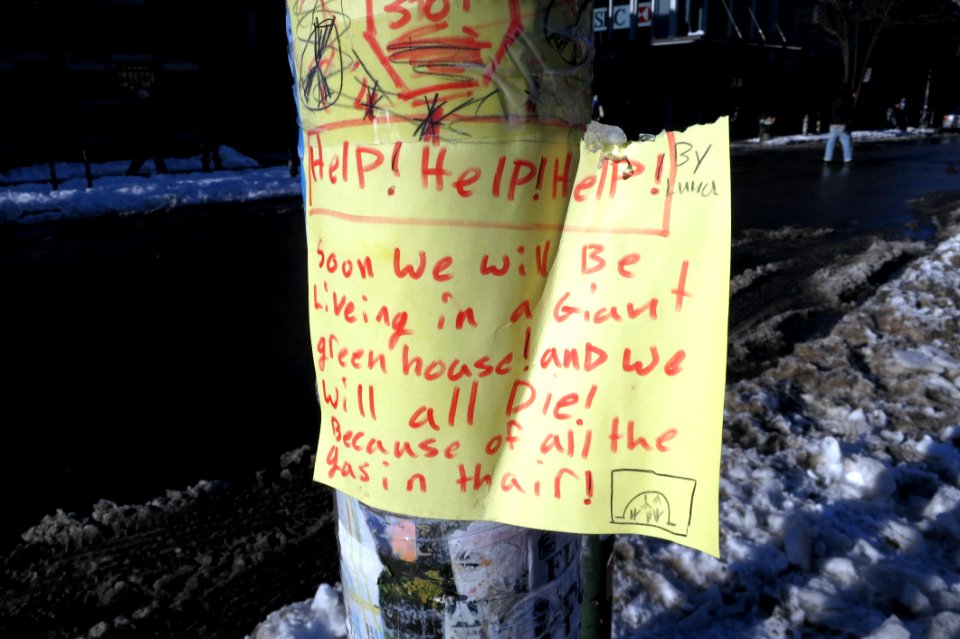 STOP
Help! Help! Help!
By
Luna
Soon We will Be
Liveing in a Giant
green house! and we
will all Die!
Because of all the
gas in thair!